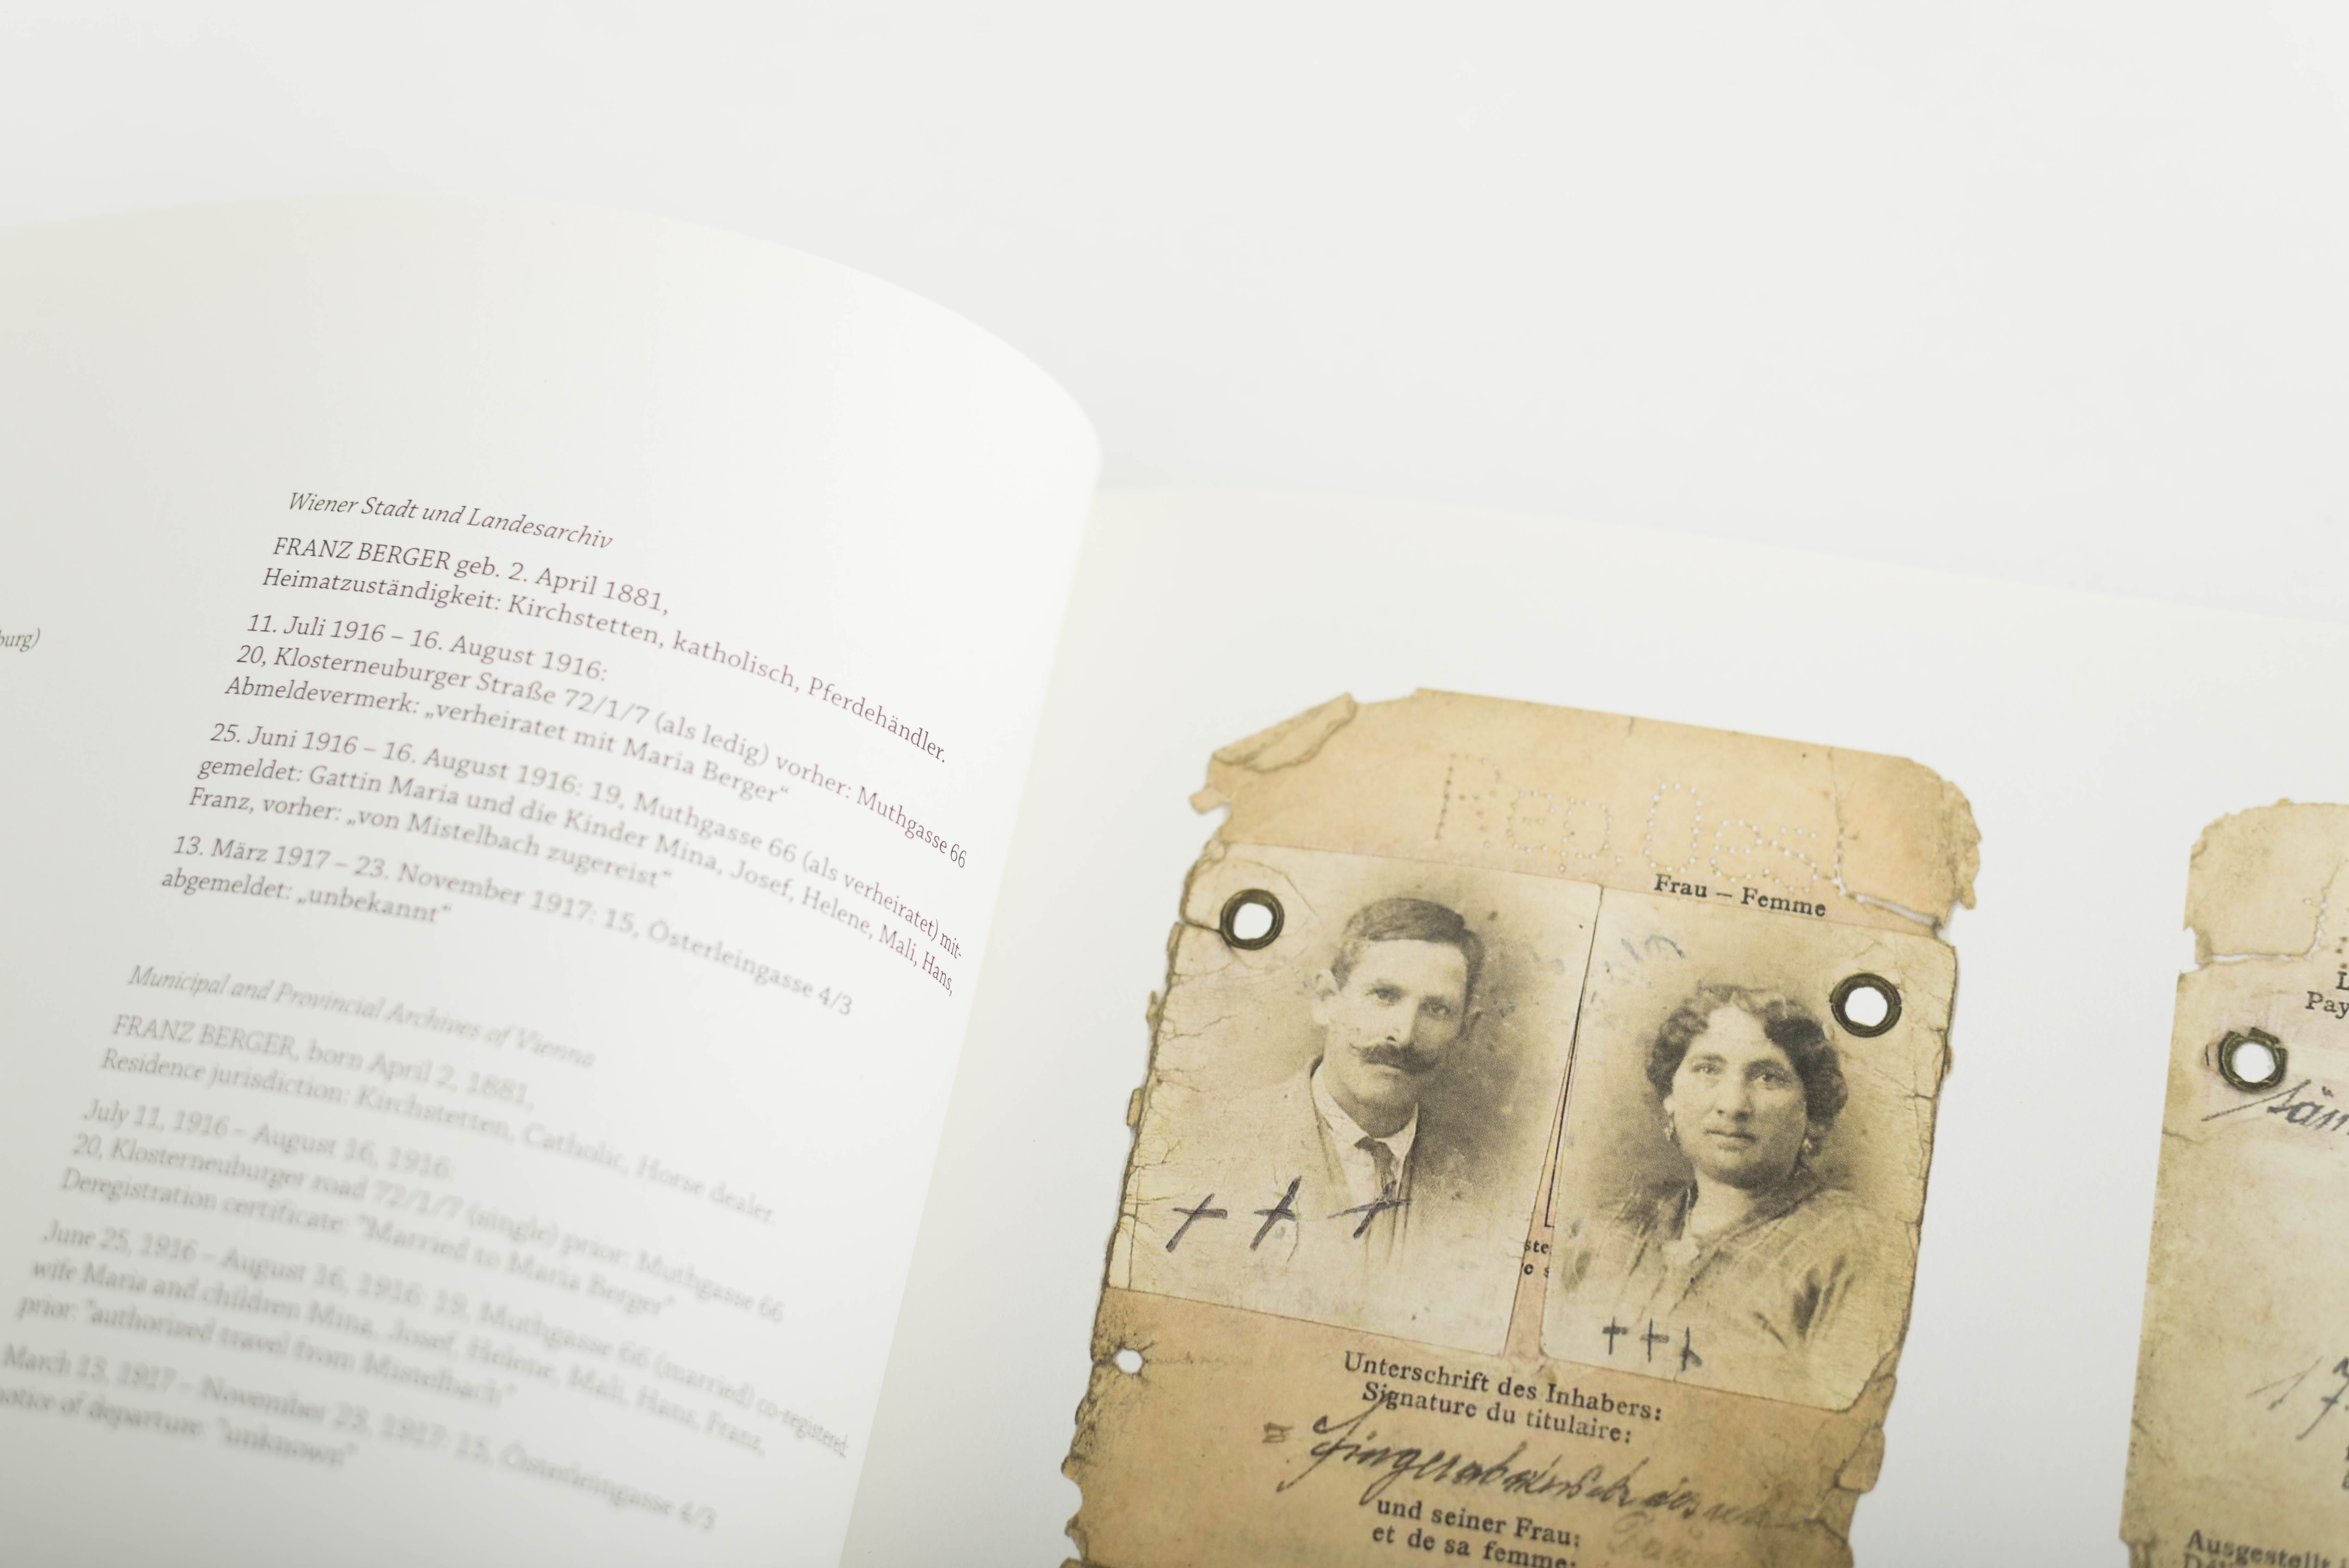 burg)
Wiener Stadt und Landesarchiv
FRANZ BERGER geb. 2. April 1881,
Heimatzuständigkeit: Kirchstetten, katholisch, Pferdehändler.
11. Juli 1916 – 16. August 1916:
20, Klosterneuburger Straße 72/1/7 (als ledig) vorher: Muthgasse 66
Abmeldevermerk: „verheiratet mit Maria Berger“
25. Juni 1916 – 16. August 1916: 19, Muthgasse 66 (als verheiratet) mit-
gemeldet: Gattin Maria und die Kinder Mina, Josef, Helene, Mali, Hans,
Franz, vorher: „von Mistelbach zugereist“
13. März 1917 – 23. November 1917: 15, Österleingasse 4/3
abgemeldet: „unbekannt“
Municipal and Provincial Archives of Vienna
FRANZ BERGER, born April 2, 1881,
Residence jurisdiction: Kirchstetten, Catholic, Horse dealer.
July 11, 1916 – August 16, 1916:
20, Klosterneuburger road 72/1/7 (single) prior: Muthgasse 66
Deregistration certificate: "Married to Maria Berger"
June 25, 1916 – August 16, 1916: 19, Muthgasse 66 (married) co-registered:
wife Maria and children Mina, Josef, Helene, Mali, Hans, Franz,
prior: "authorized travel from Mistelbach"
March 13, 1917 – November 23, 1917: 15, Österleingasse 4/3
notice of departure: "unknown"
Rep. Oest
Frau — Femme
+ + +
+ + +
Unterschrift des Inhabers:
Signature du titulaire:
und seiner Frau:
et de sa femme:
Pay
17
Ausgestellt